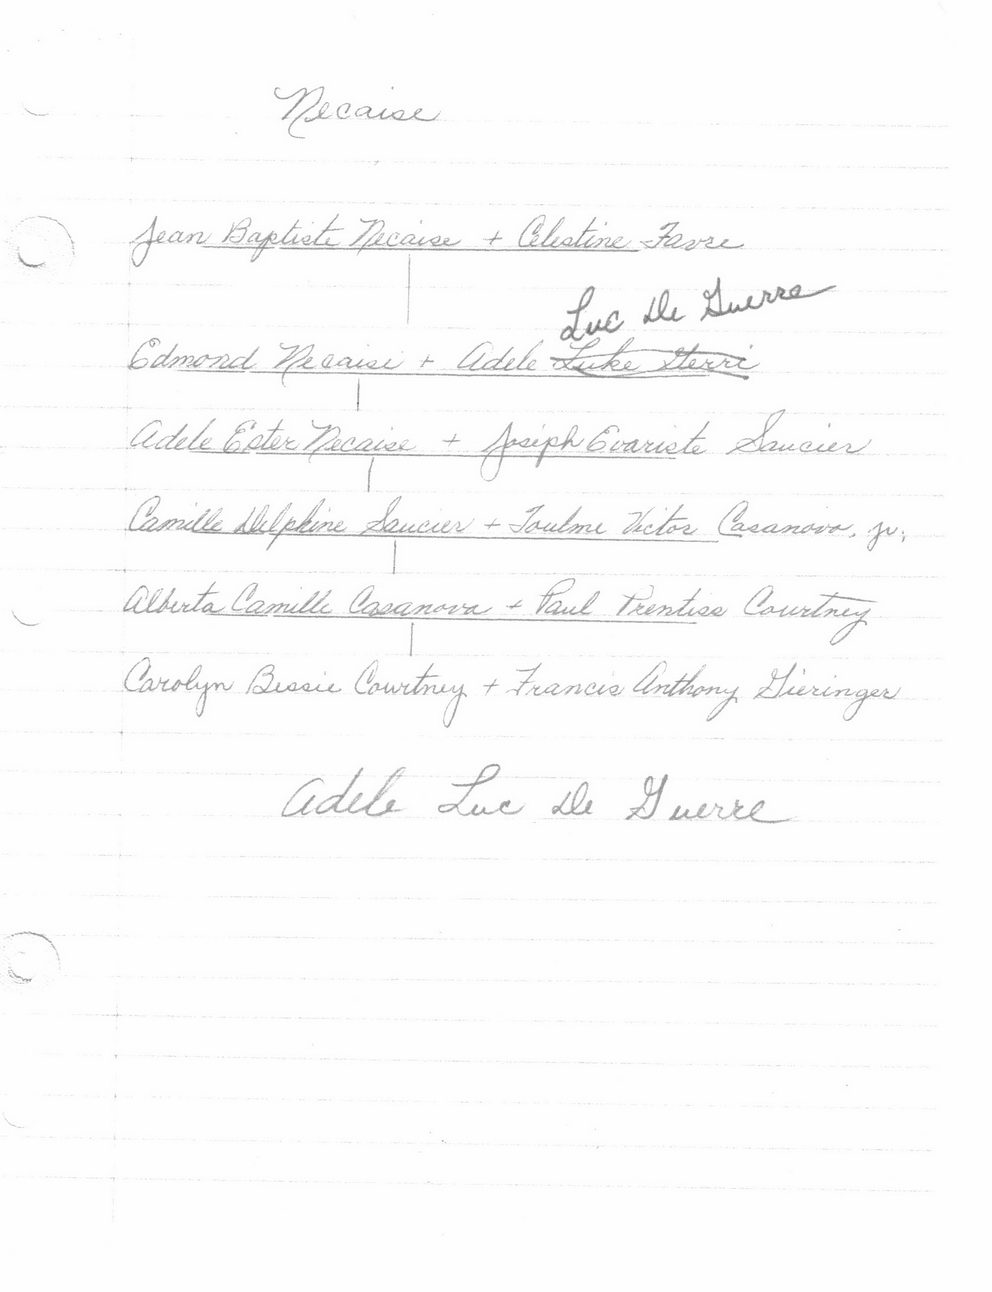 Necaise
Jean Baptiste Necaise + Celestine Favre
Luc De Guerre
Edmond Necaise + Adele Luke Sterri
Adele Ester Necaise + Joseph Evariste Saucier
Camille Delphine Saucier + Toulme Victor Casanova, Jr.
Alberta Camille Casanova + Paul Prentiss Courtney
Carolyn Bessie Courtney + Francis Anthony Gieringer
Adele Luc De Guerre